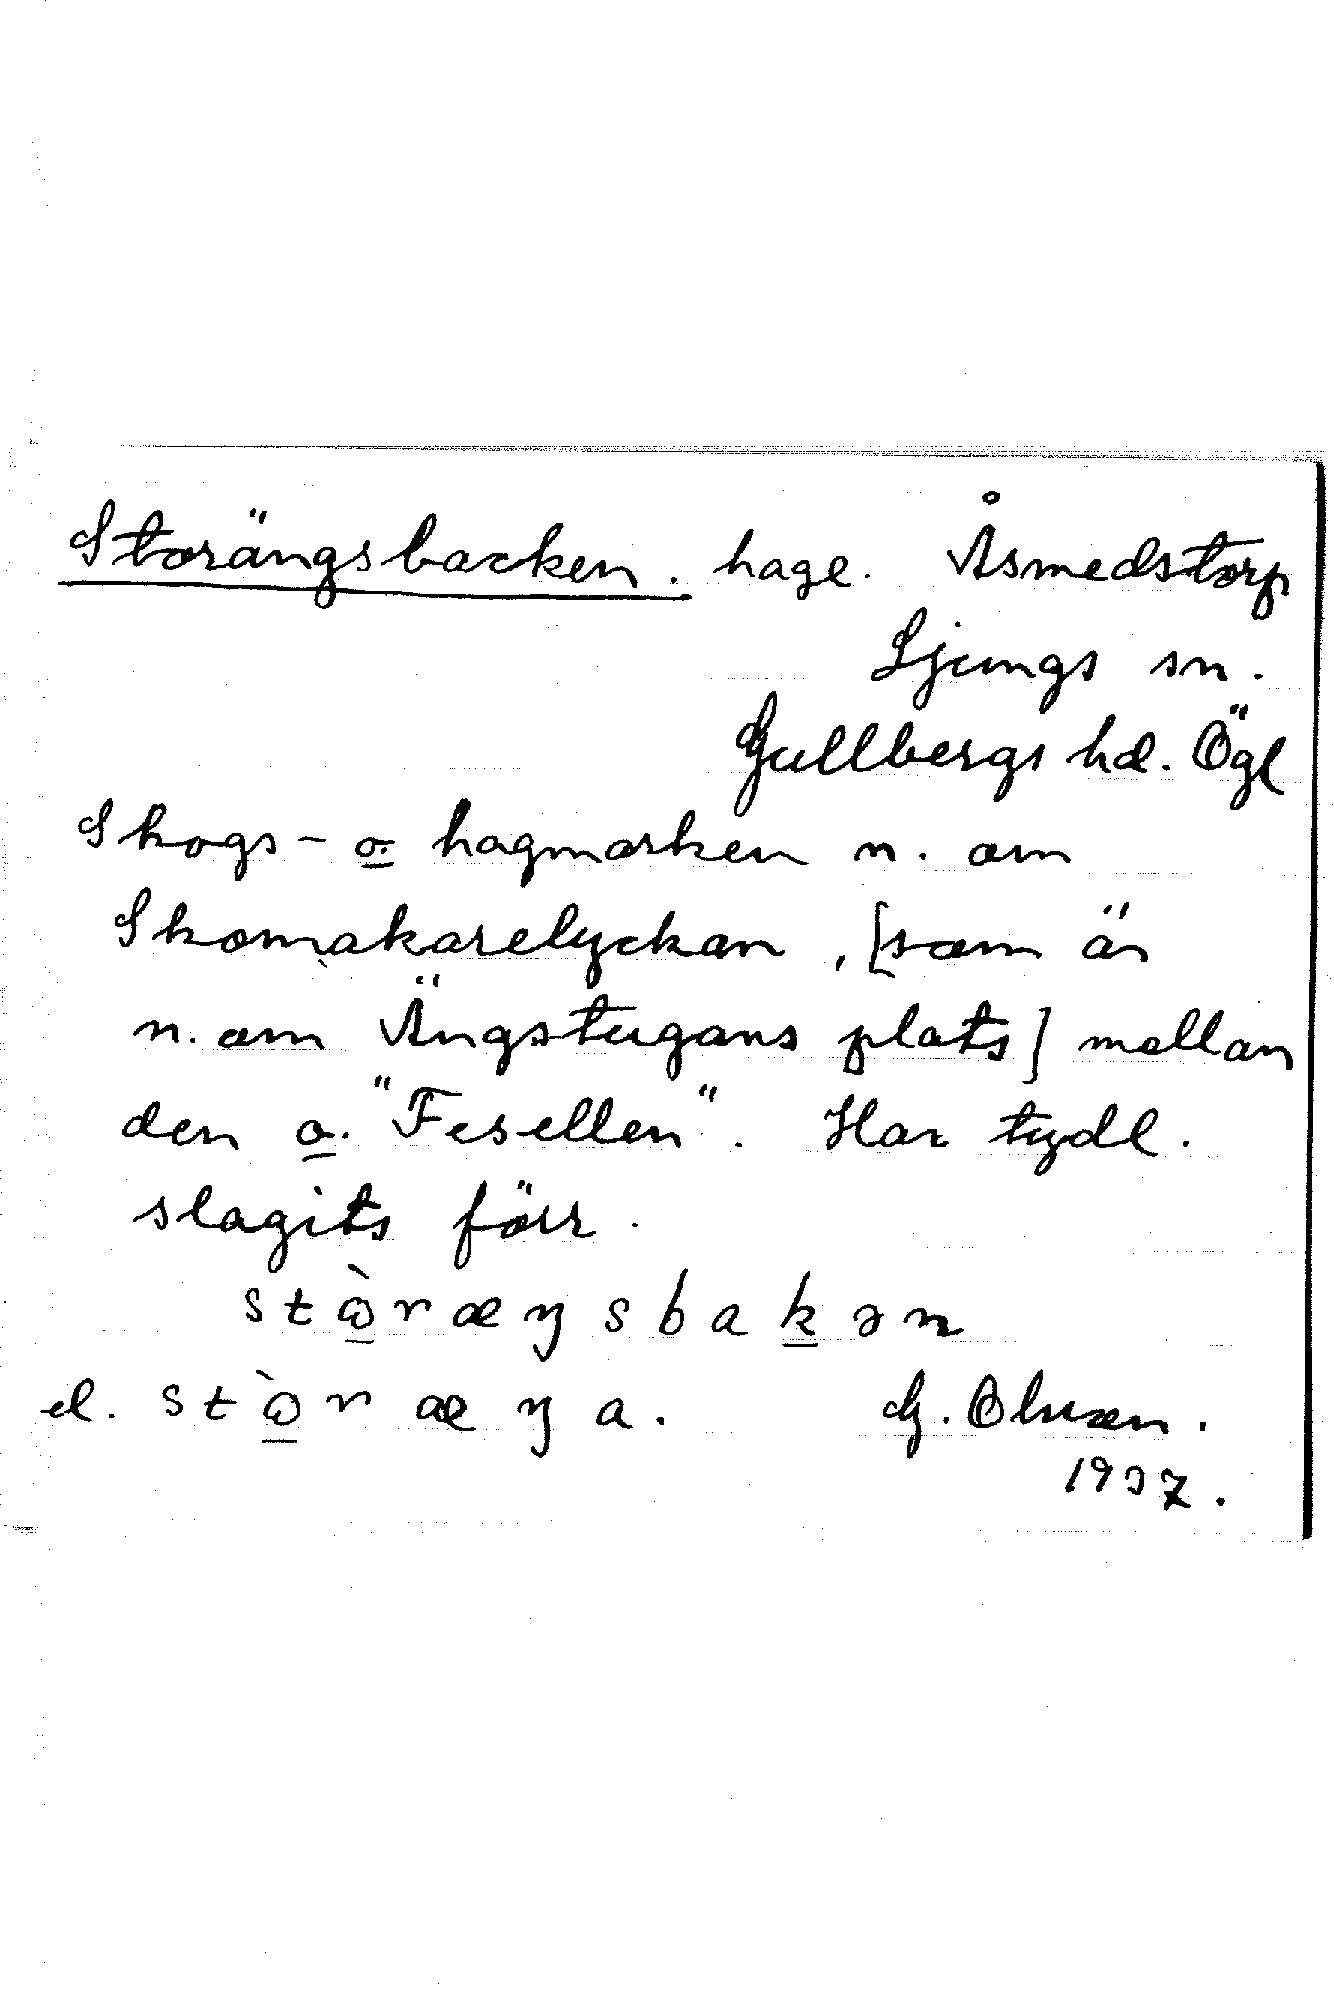 Storängsbacken. hage. Åsmedstorp
Ljungs sn.
Gullbergs hd. Ögl
Skogs- o. hagmarken n. om
Skomakarelyckan, [som är
n. om Ängstugans plats] mellan
den o. "Fesellen". Har tydl.
slagits förr.
stɷ̀ræŋsbakən
el. stɷ̀ræŋa. G. Olsson.
1937.